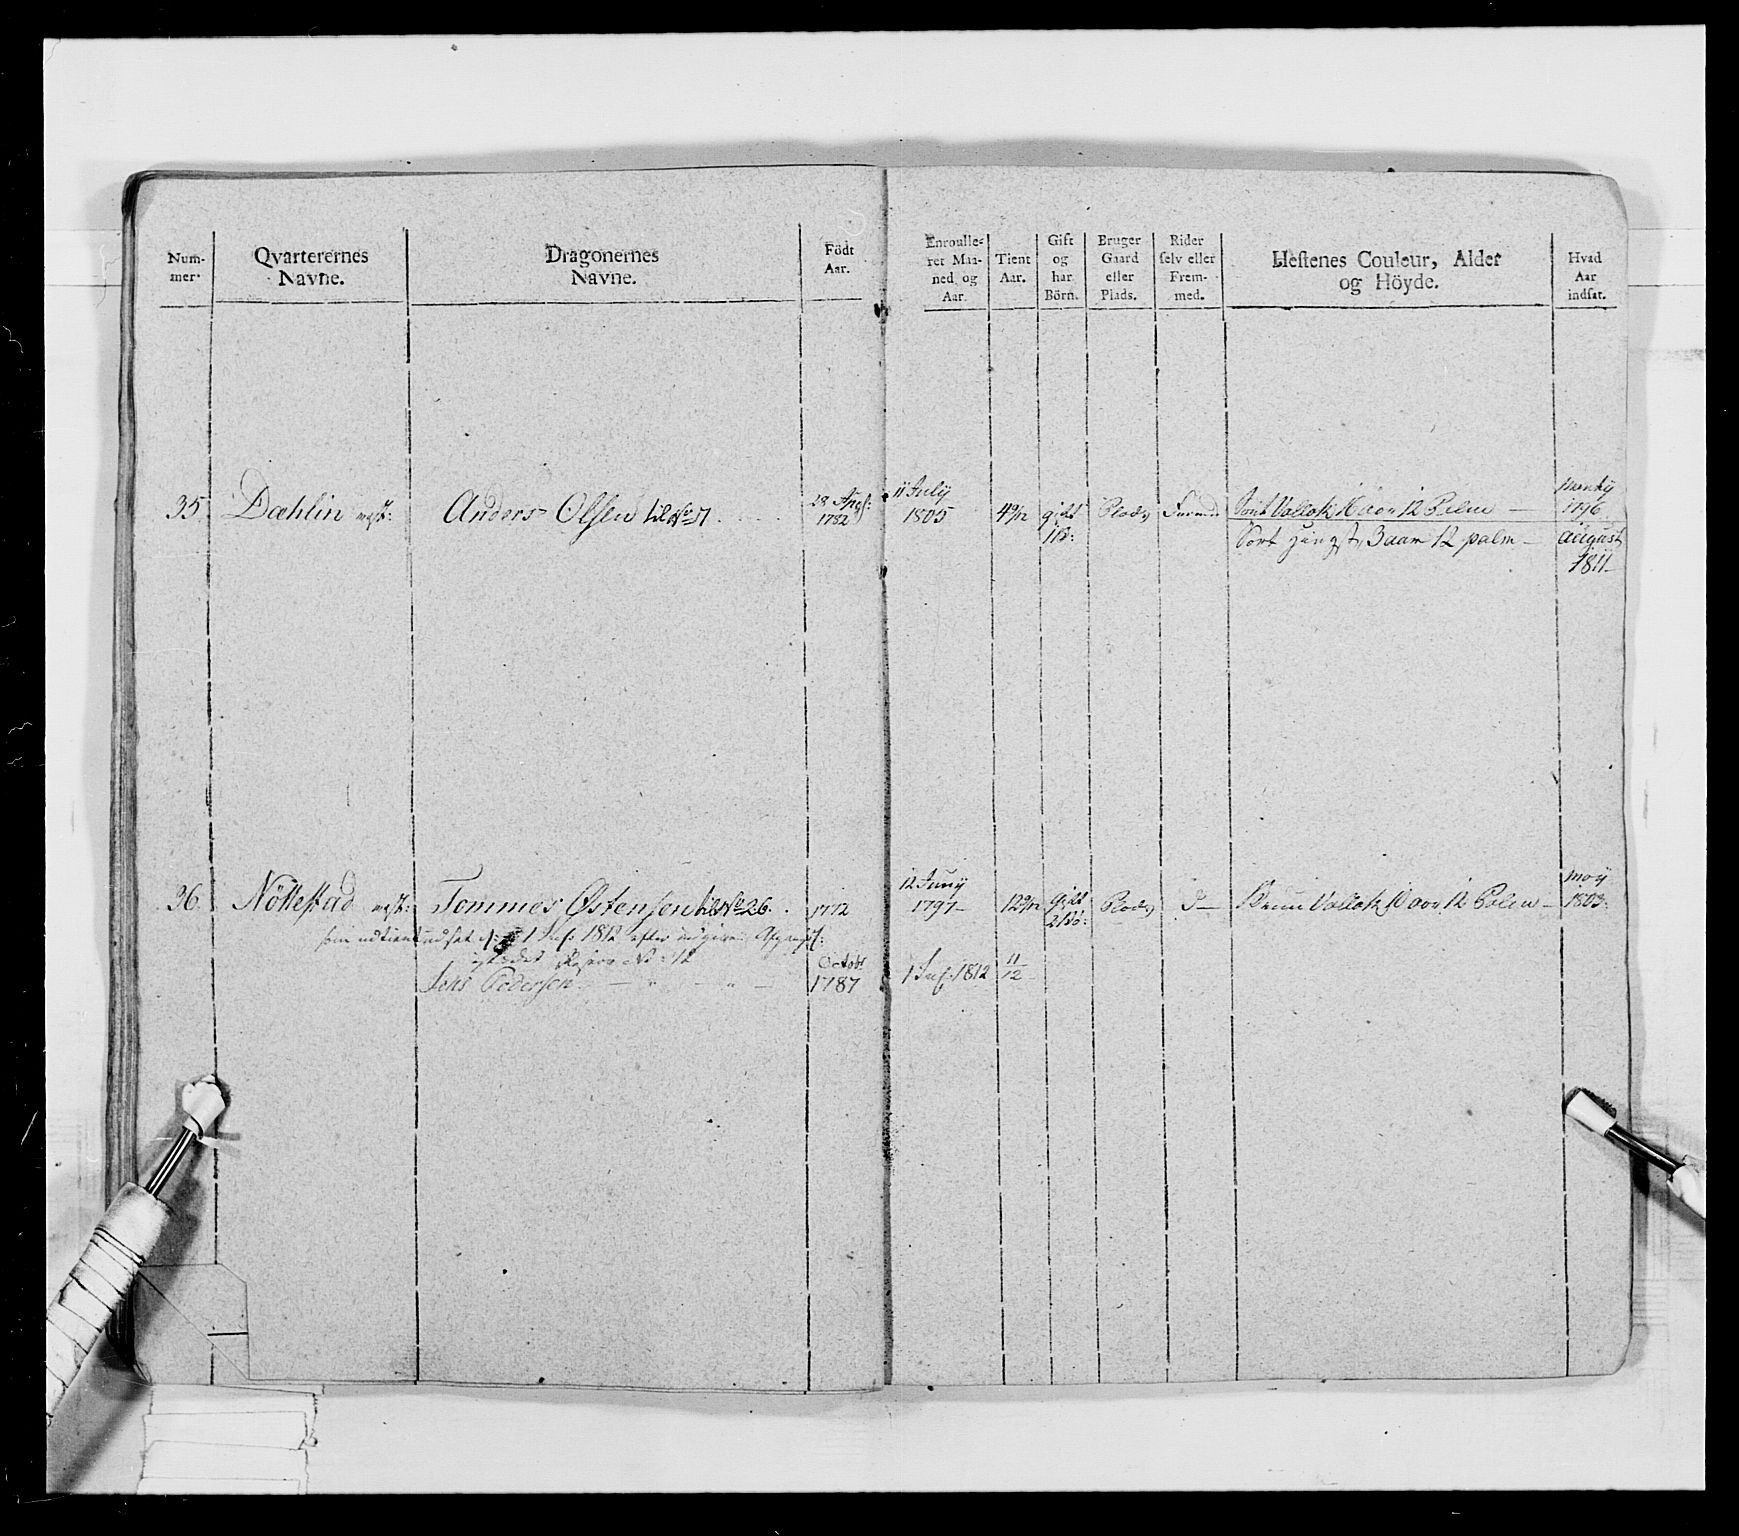 Num-
mer.
Qvarterernes
Navne.
Dragonernes
Navne.
Födt
Aar.
Enroulle-
ret Maa-
ned og
Aar.
Tient
Aar.
Gift
og
har
Börn.
Bruger
Gaard
eller
Plads.
Rider
selv eller
Frem-
med.
Hestenes Couleur, Alder
og Höyde.
Hvad
Aar
indsat.
35. Dæhlin Anders Olsen til No 17
1782
11 July
1805
4 9/12
gift
1 B:
Plads
Sort Vallak 16 aar 12 Palm —
1796
Sort Hingst, 3 aar 12 palm —
August
1811
36. Nöttestad Tommes Østensen til No 26.
1772
12 Juny
1797
12 9/12
gift
2 Bö:
Plads
D—
Bruun Vallak 10 aar 12 Palm —
May
1803
som udtient 1812 efter
No 12
Jens Pedersen
Octobr
1787
1812
11/12